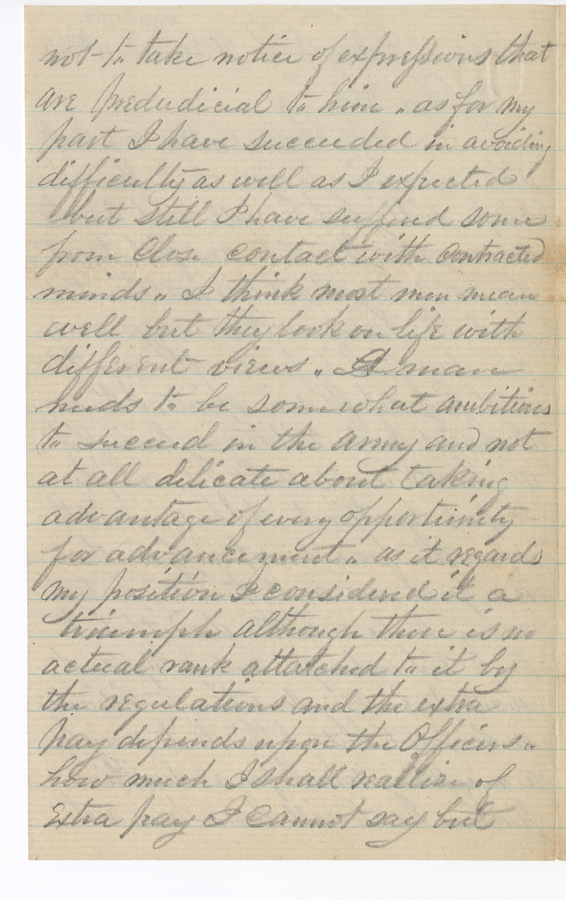 not to take notice of expressions that
are predudicial to him „ as for my
part I have succeeded in avoiding
difficulty as well as I expected
but still I have suffered some
from close contact with contracted
minds „ I think most men mean
well but they look on life with
different views „ A man
needs to be somewhat ambitious
to succeed in the army and not
at all delicate about taking
advantage of every opportunity
for advancement „ as it regards
my position I considered it a
triumph although there is no
actual rank attatched to it by
the regulations and the extra
pay depends upon the Officers „
how much I shall reallise of
extra pay I cannot say but